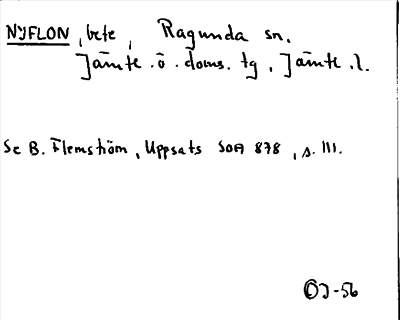 NYFLON, bete, Ragunda sn.
Jämte. ö. doms. tg, Jämte. l.
Se B. Flemström, Uppsats SOA 878, s. 111.
OJ-56